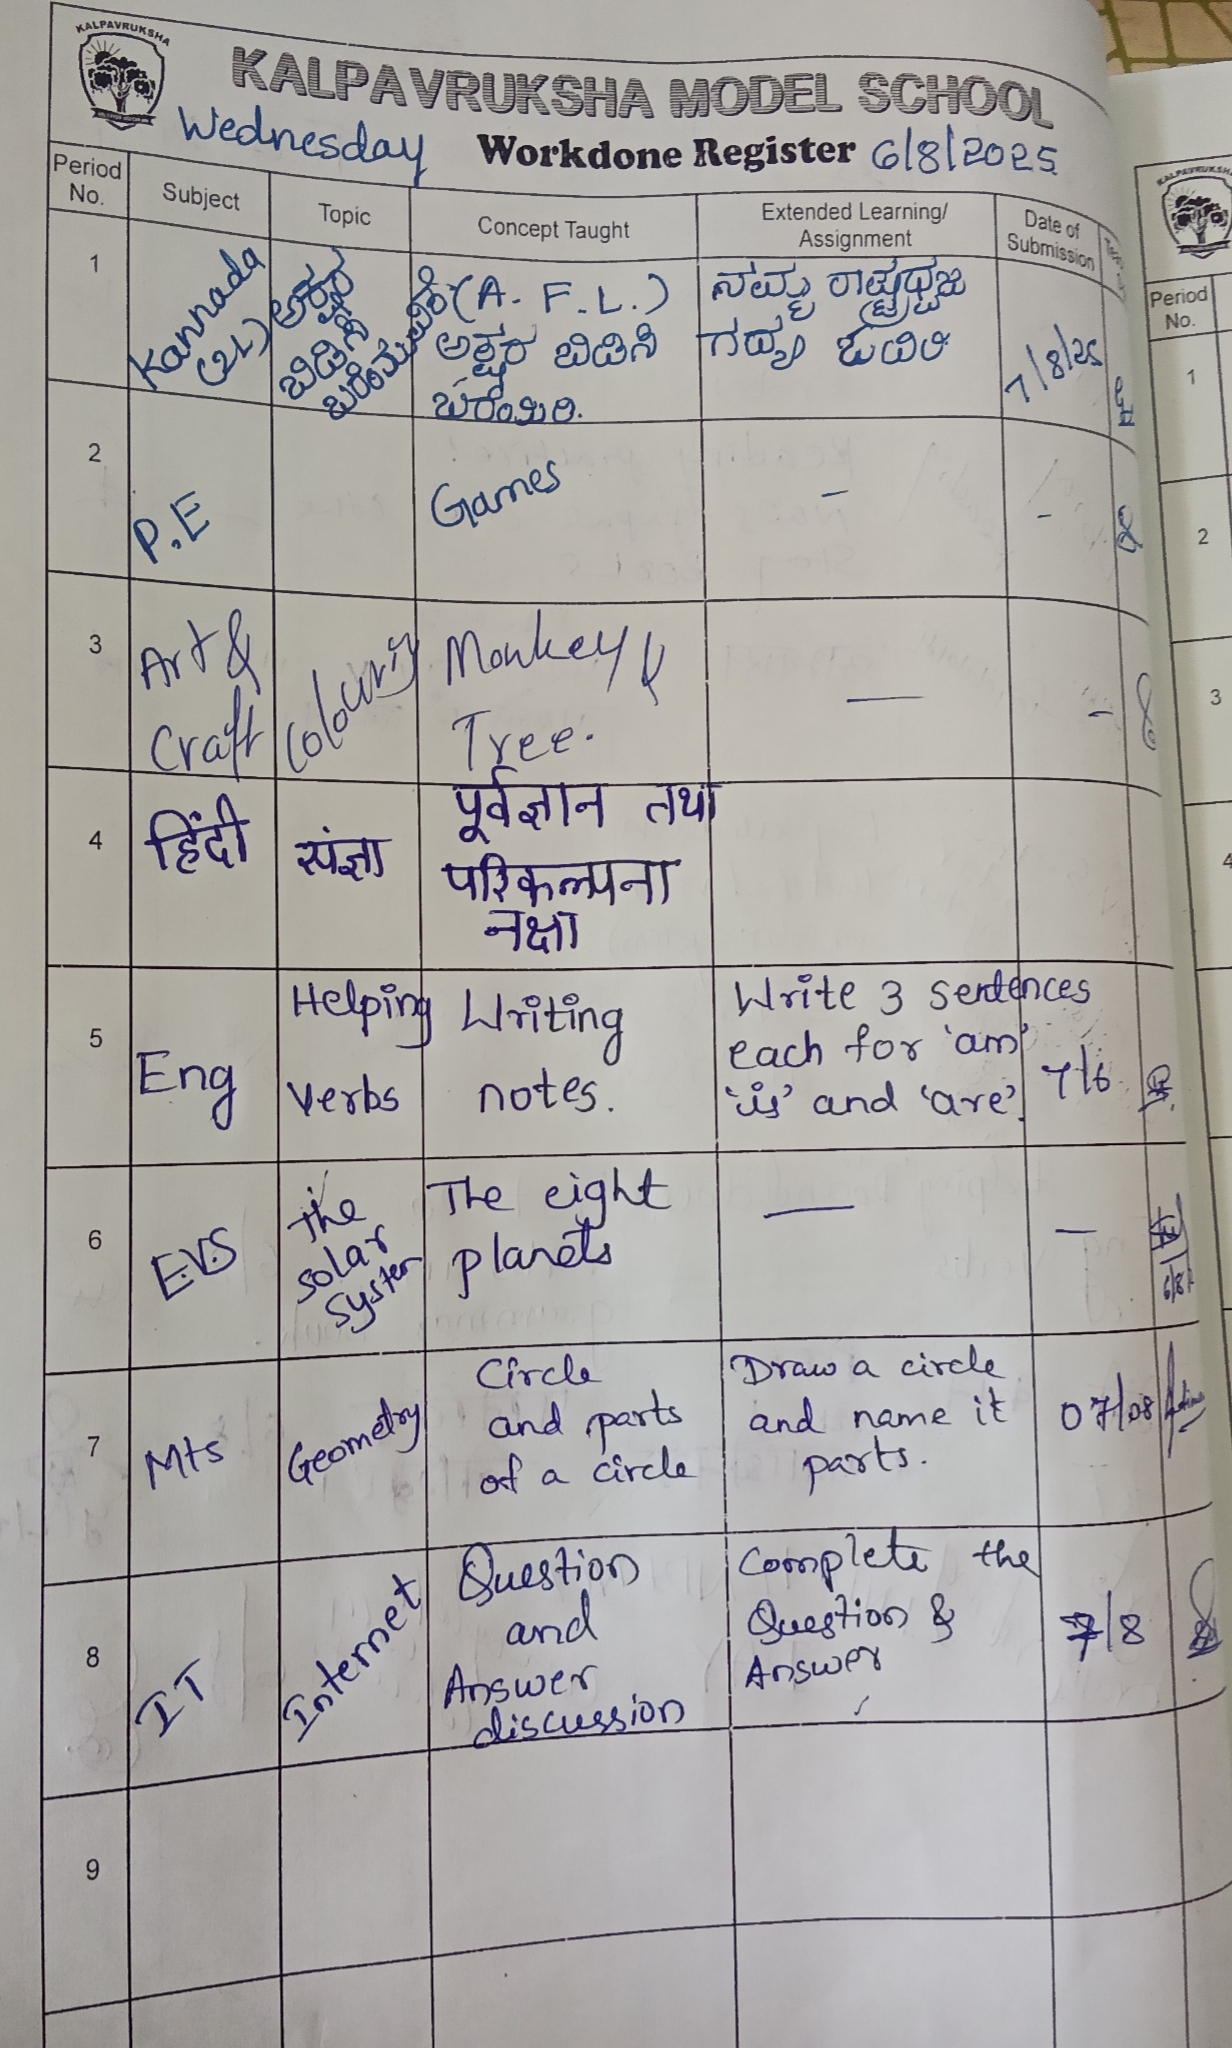 KALPAVRUKSHA
KALPAVRUKSHA MODEL SCHOOL
Wednesday Workdone Register 6/8/2025
Period No. Subject Topic Concept Taught Extended Learning/ Assignment Date of Submission
1 Kannada (2L) ಅಕ್ಷರ ಬಿಡಿಸಿ (A.F.L.) ನಮ್ಮ ರಾಷ್ಟ್ರಧ್ವಜ
ಅಕ್ಷರ ಬಿಡಿಸಿ ಗದ್ಯ ಓದಿರಿ 7/8/25
ಬರೆಯಿರಿ.
2 P.E Games - -
3 Art & Colouring Monkey & — -
Craft Tree.
4 हिंदी संज्ञा पूर्वज्ञान तथा
परिकल्पना
नक्षा
5 Eng Helping Writing Write 3 sentences
Verbs notes. each for 'am'
'is' and 'are'. 7/6
6 E.V.S The The eight — —
solar planets
system 6/8/
7 Mts Geometry Circle Draw a circle 07/08
and parts and name it
of a circle parts.
8 IT Internet Question Complete the 7/8
and Question &
Answer Answer
discussion
9
Period No.
1
2
3
4